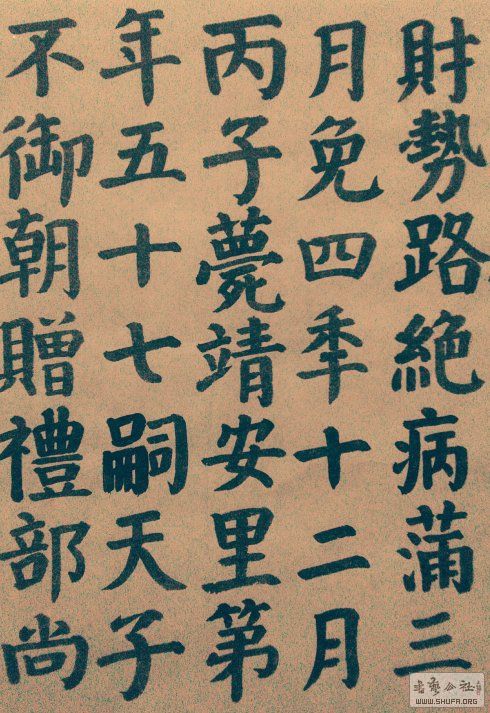 財勢路絶病蒲三
月免四季十二月
丙子薨靖安里第
年五十七嗣天子
不御朝贈禮部尚
書藝公社
WWW.SHUFA.ORG